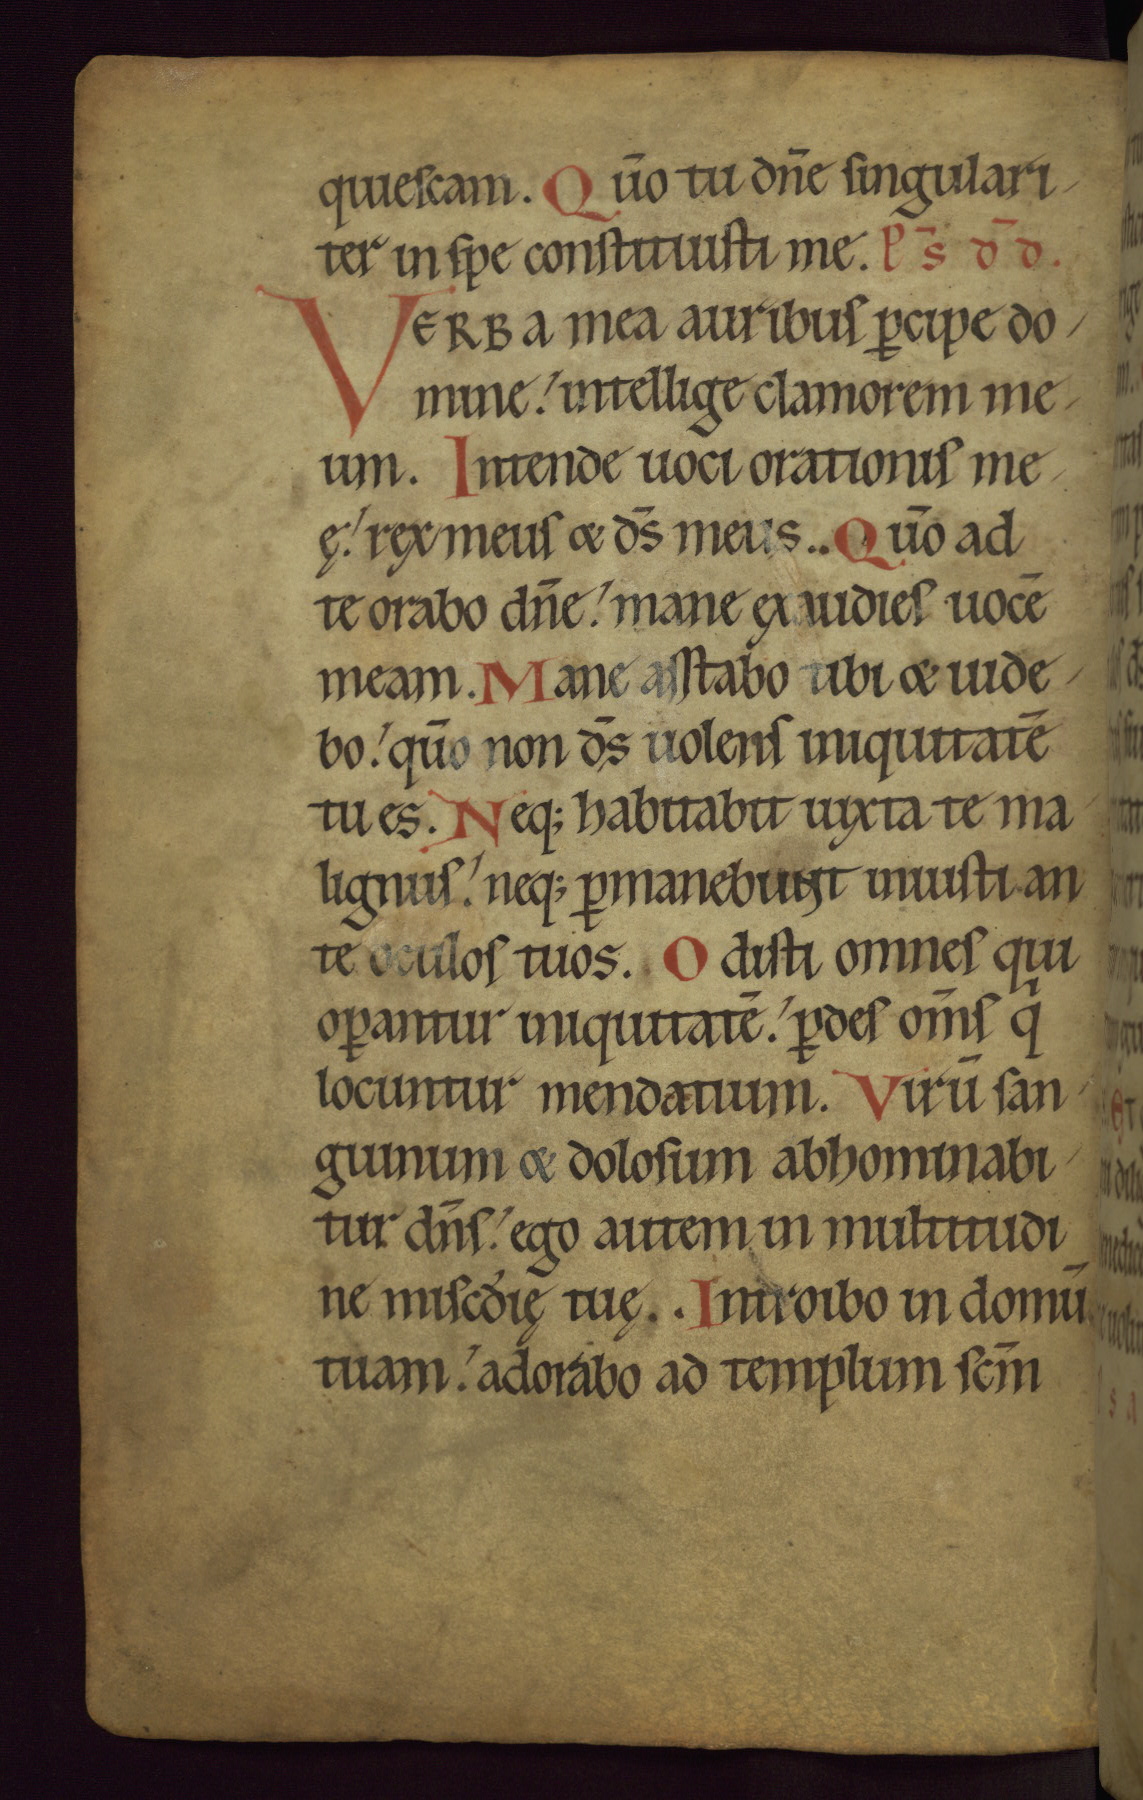 quiescam. Qūo tu dn̄e singulari-
ter in spe constituisti me. Ps̄ d̄d.
VERBA mea auribus ꝑcipe do-
mine: intellige clamorem me-
um. Intende uoci orationis me-
ę: rex meus & ds̄ meus.. Qūo ad
te orabo dn̄e: mane exaudies uocē
meam. Mane asstabo tibi & uide-
bo: qūo non ds̄ uolens iniquitatē
tu es. Neq; habitabit iuxta te ma-
lignus: neq; ꝑmanebunt iniusti an
te oculos tuos. Odisti omnes qui
oꝑantur iniquitatē: ꝑdes om̄s qi
locuntur mendatium. Virū san-
guinum & dolosum abhominabi-
tur dn̄s: ego autem in multitudi
ne miscd̄ię tuę.. Introibo in domū
tuam: adorabo ad templum sc̄m